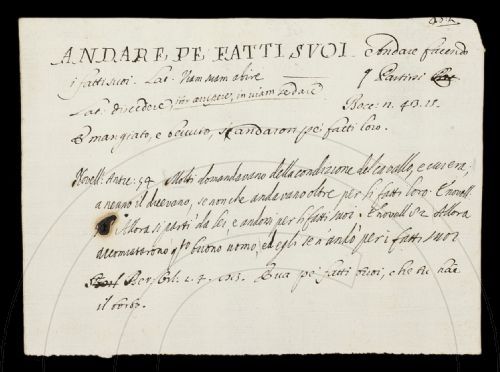 ANDARE PE FATTI SUOI. e Andare facendo
i fatti suoi. Lat. Viam suam abire p Partirsi
Lat. discedere, in viam se dare Bocc. n. 43. 15.
E mangiato, e bevuto, s'andaron pei fatti loro.
Novell. Ant. 94. Molti domandavano della condizione del cavallo, e cui era,
a neuno il dicevano, se non che andavano oltre per li fatti loro. E novell.
Allora si parti da lei, e andossi per li fatti suoi. E novell. 82. Allora
accomiatarono q.º buono uomo, ed egli se n'andò per i fatti suoi
Ber. Orl. 2. 4. Va pe' fatti tuoi, che tu
il